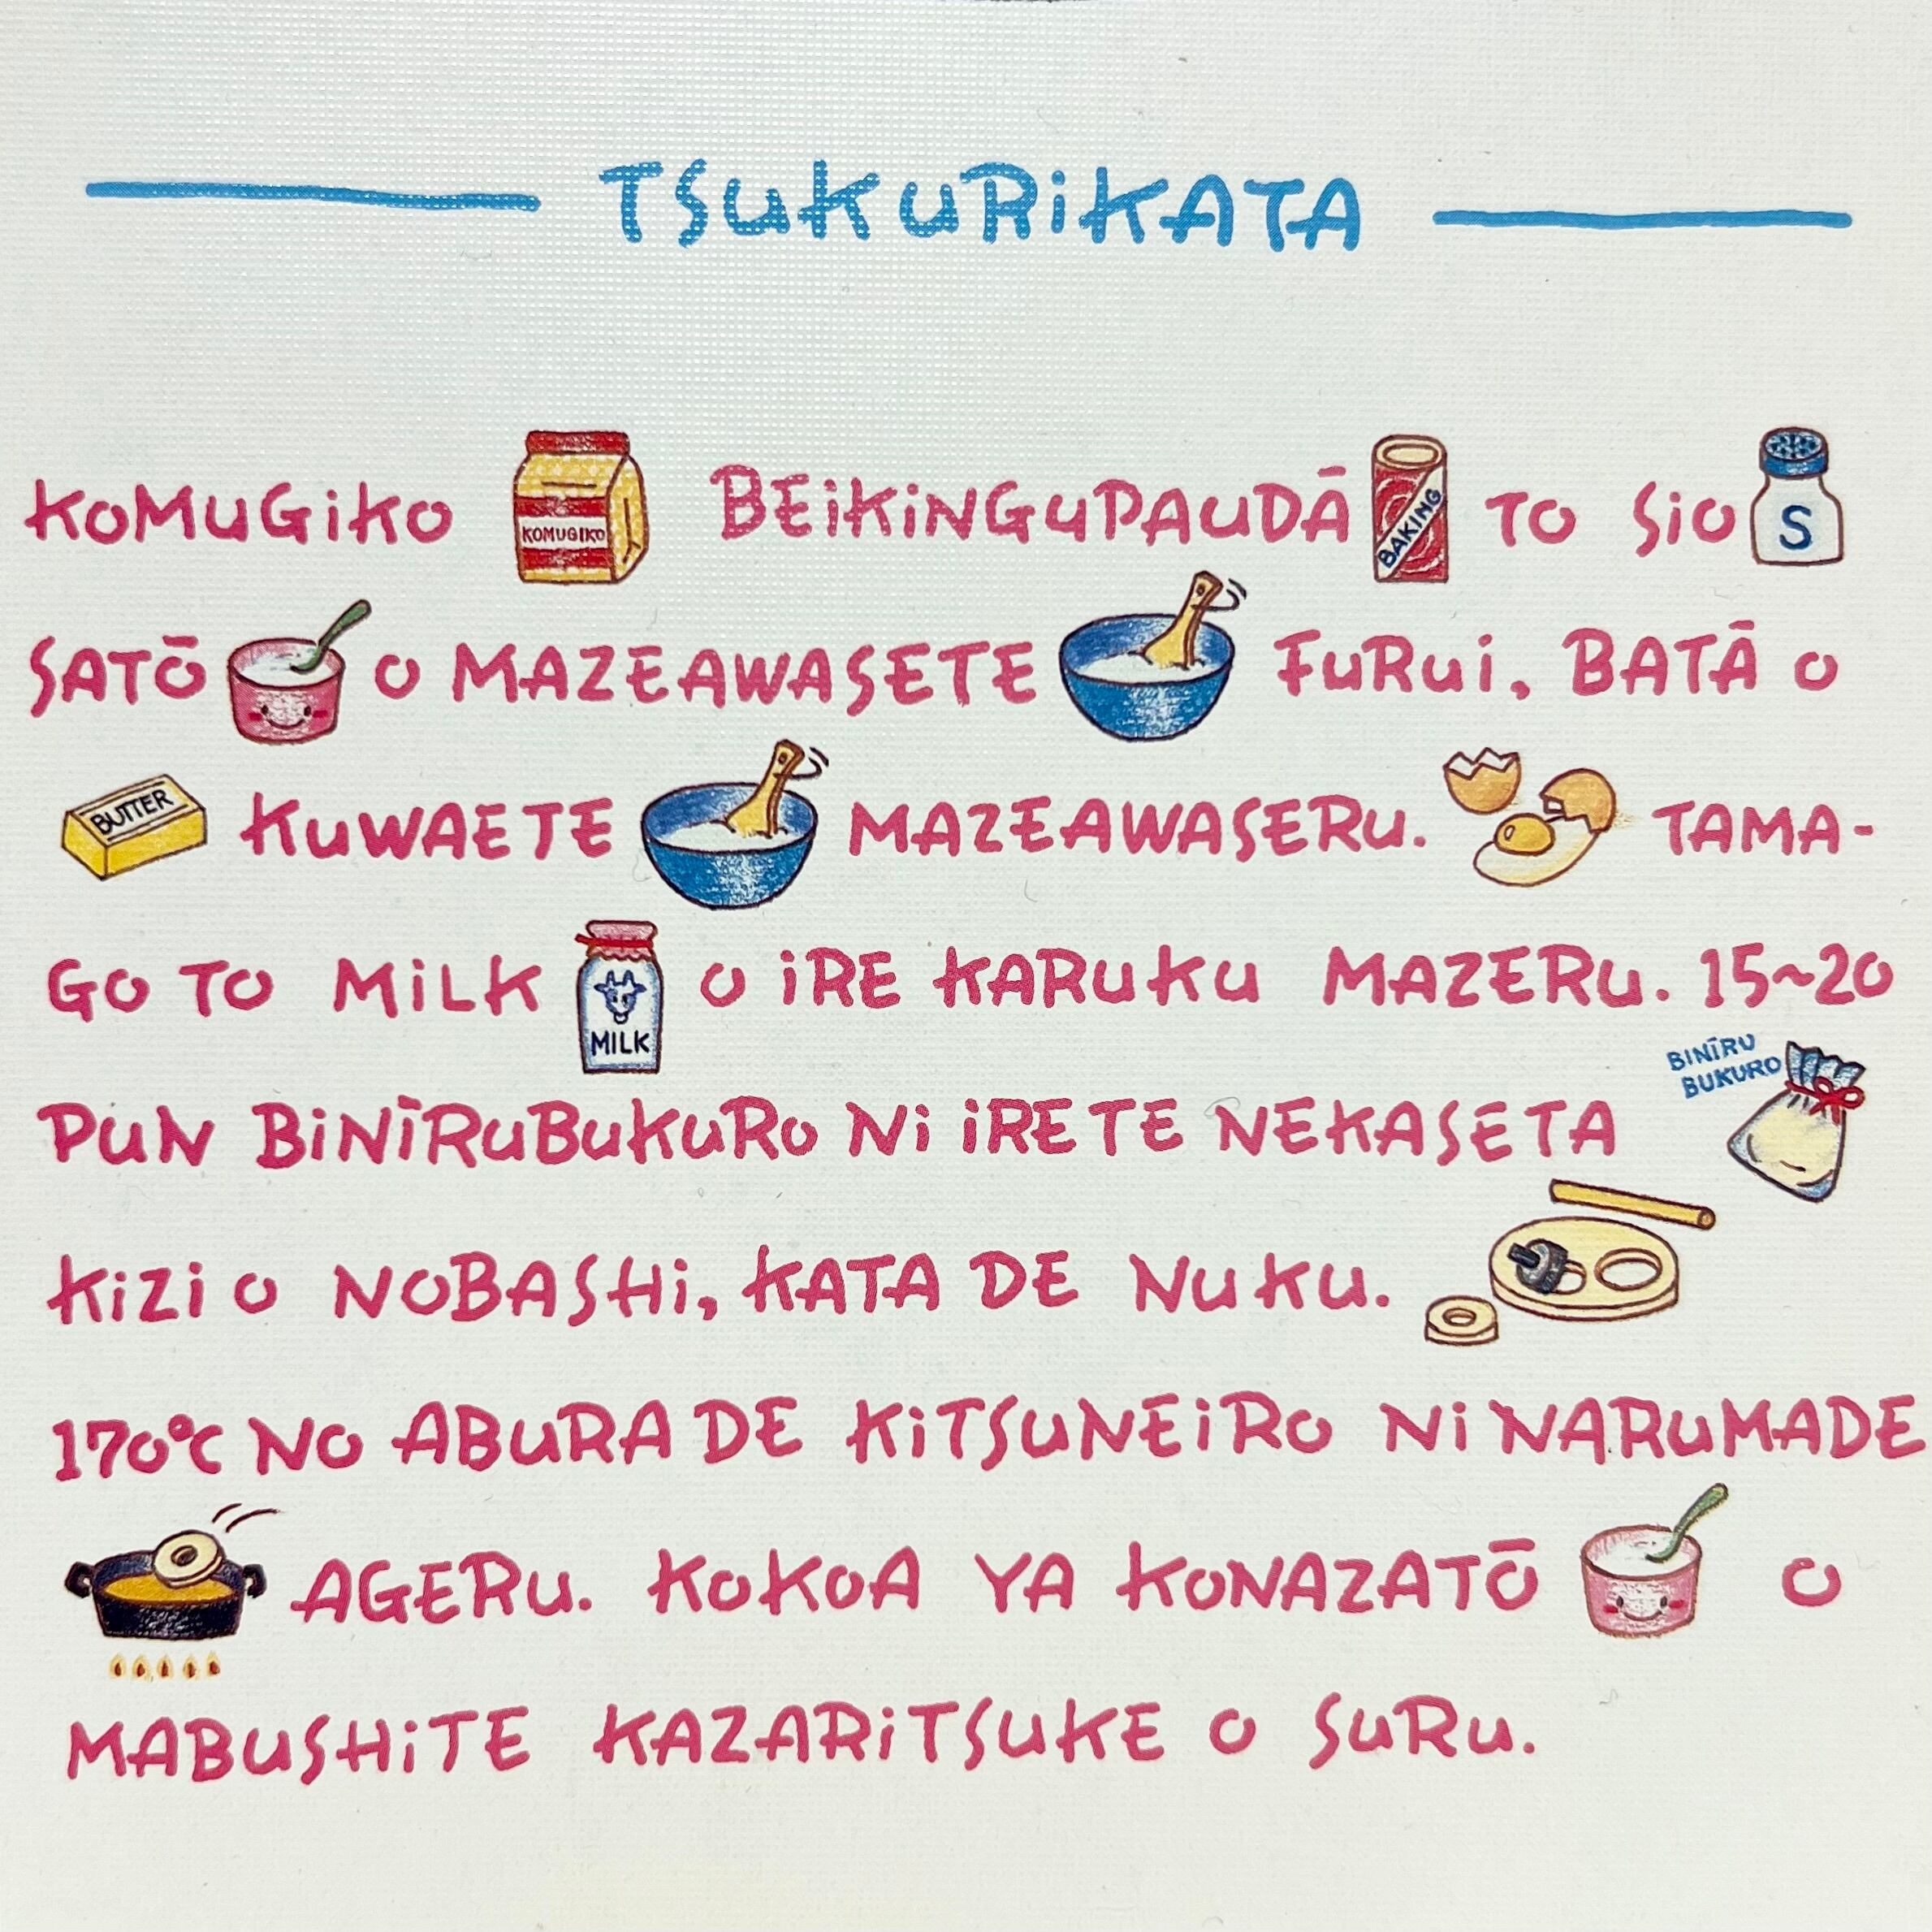 TSUKURIKATA
KOMUGIKO KOMUGIKO BEIKINGUPAUDĀ BAKING TO SIO S
SATŌ O MAZEAWASETE FURUI, BATĀ O
BUTTER KUWAETE MAZEAWASERU. TAMA-
GO TO MILK MILK O IRE KARUKU MAZERU. 15~20
BINĪRU
BUKURO
PUN BINĪRUBUKURO NI IRETE NEKASETA
KIZI O NOBASHI, KATA DE NUKU.
170°C NO ABURA DE KITSUNEIRO NI NARUMADE
AGERU. KOKOA YA KONAZATŌ O
MABUSHITE KAZARITSUKE O SURU.